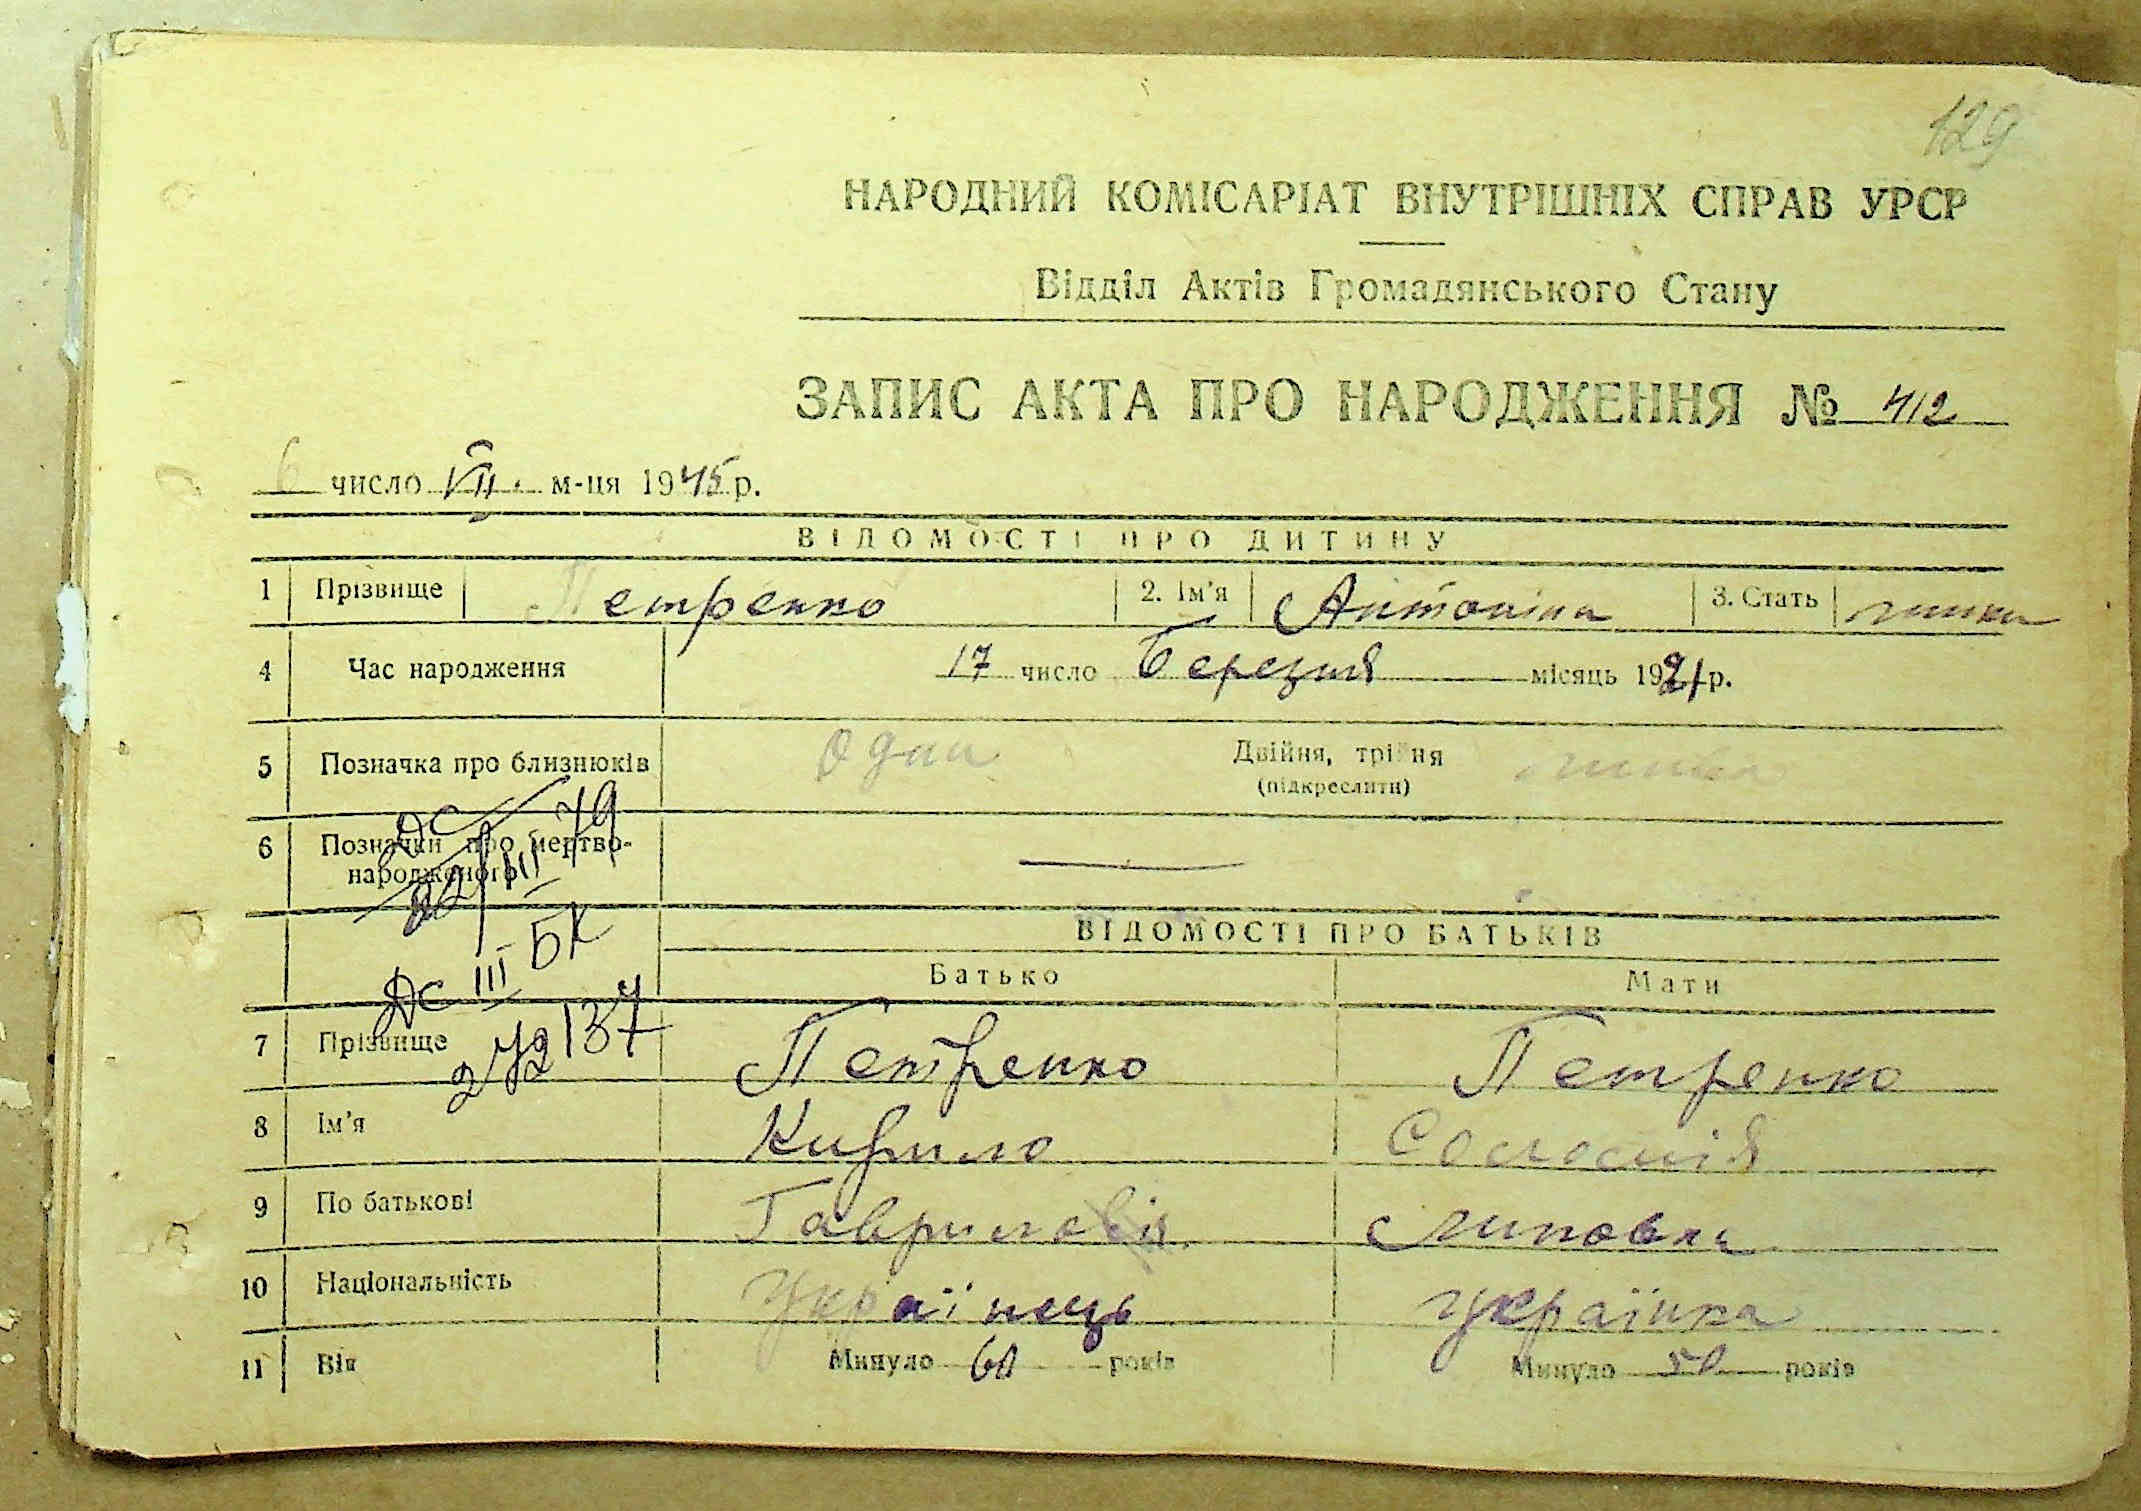 129
НАРОДНИЙ КОМІСАРІАТ ВНУТРІШНІХ СПРАВ УРСР
Відділ Актів Громадянського Стану
ЗАПИС АКТА ПРО НАРОДЖЕННЯ № 412
6 число VII. м-ця 1945 р.
ВІДОМОСТІ ПРО ДИТИНУ
1 Прізвище Петренко 2. Ім'я Антоніна 3. Стать
4 Час народження 17 число Березня місяць 1921 р.
5 Позначка про близнюків Один Двійня, трійня
(підкреслити)
6 Позначки про мертво-
народженого
ДС III 79
ВІДОМОСТІ ПРО БАТЬКІВ
ДС III БК
Батько Мати
272137
7 Прізвище Петренко Петренко
8 Ім'я Кирило
9 По батькові
10 Національність Українець Українка
11 Вік Минуло 60 років Минуло 50 років